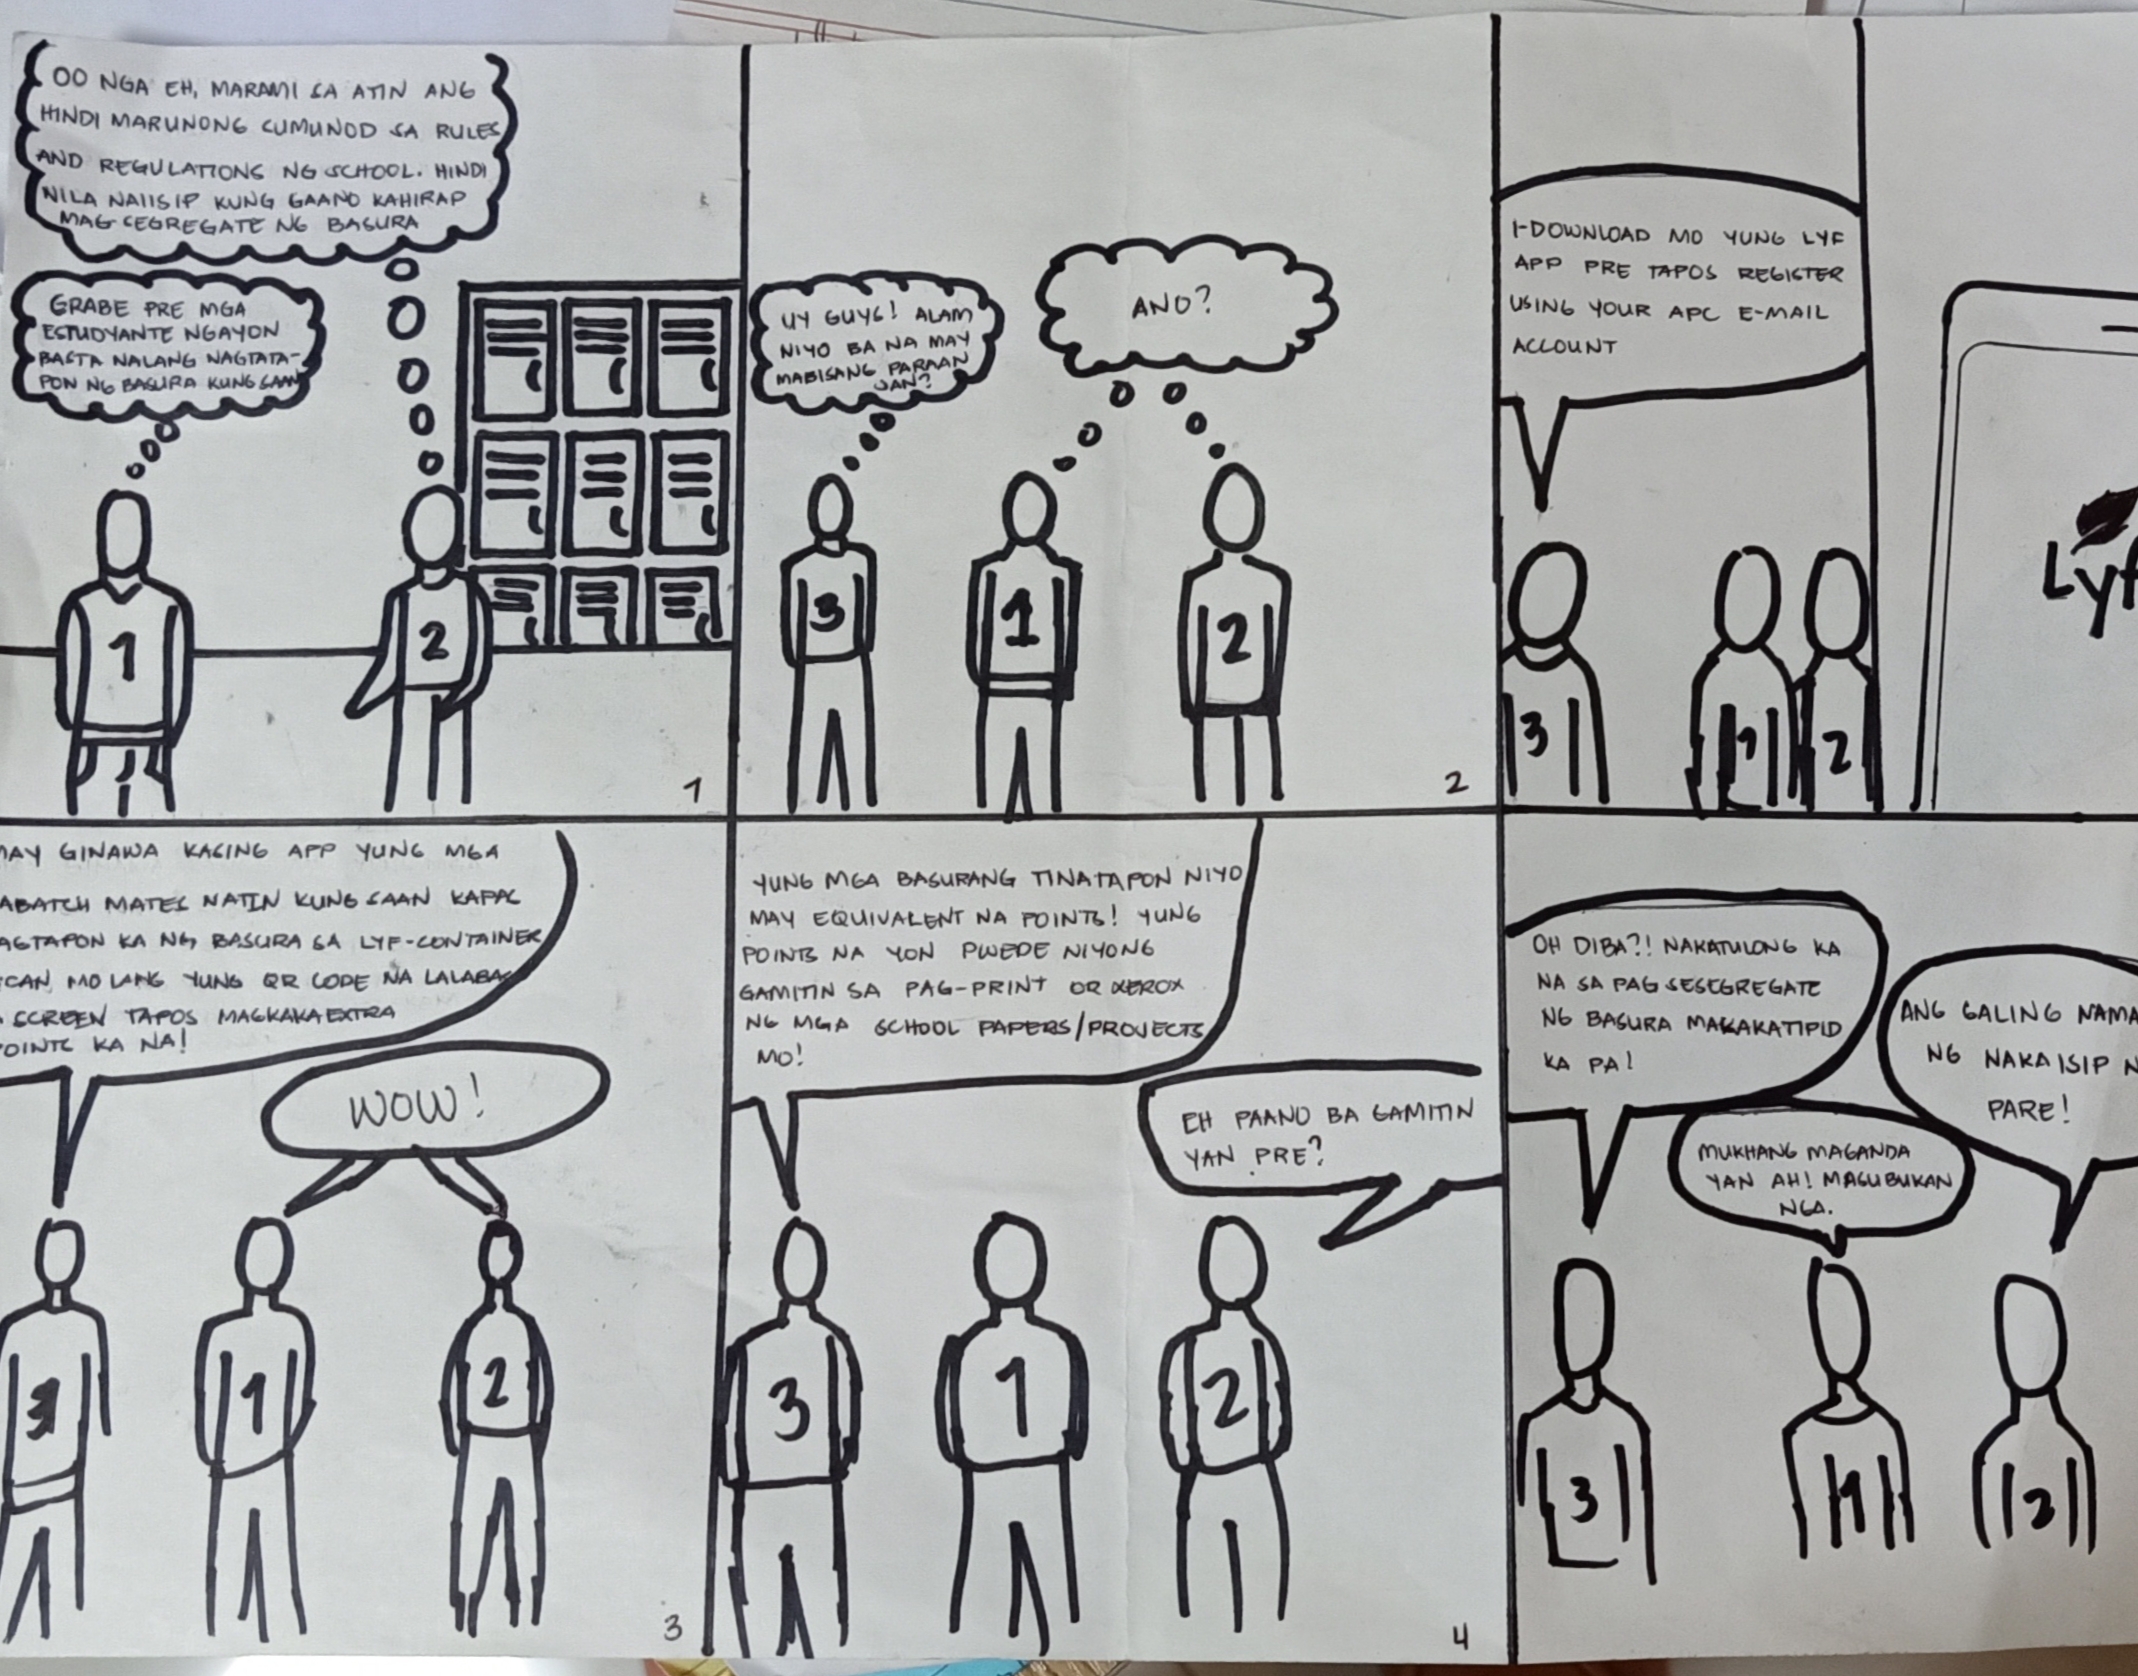 OO NGA EH, MARAMI SA ATIN ANG
HINDI MARUNONG SUMUNOD SA RULES
AND REGULATIONS NG SCHOOL. HINDI
NILA NAIISIP KUNG GAANO KAHIRAP
MAG SEGREGATE NG BASURA
GRABE PRE MGA
ESTUDYANTE NGAYON
BASTA NALANG NAGTATA-
PON NG BASURA KUNG SAAN
1
2
1
UY GUYS! ALAM
NIYO BA NA MAY
MABISANG PARAAN
JAN?
ANO?
3
1
2
2
I-DOWNLOAD MO YUNG LYF
APP PRE TAPOS REGISTER
USING YOUR APC E-MAIL
ACCOUNT
3
1
2
Lyf
MAY GINAWA KASING APP YUNG MGA
ABATCH MATES NATIN KUNG SAAN KAPAG
AGTAPON KA NG BASURA SA LYF-CONTAINER
SCAN MO LANG YUNG QR CODE NA LALABAS
SCREEN TAPOS MAGKAKAEXTRA
POINTS KA NA!
WOW!
3
1
2
3
YUNG MGA BASURANG TINATAPON NIYO
MAY EQUIVALENT NA POINTS! YUNG
POINTS NA YON PWEDE NIYONG
GAMITIN SA PAG-PRINT OR XEROX
NG MGA SCHOOL PAPERS/PROJECTS
MO!
EH PAANO BA GAMITIN
YAN PRE?
3
1
2
4
OH DIBA?! NAKATULONG KA
NA SA PAG SESEGREGATE
NG BASURA MAKAKATIPID
KA PA!
MUKHANG MAGANDA
YAN AH! MASUBUKAN
NGA.
ANG GALING NAMA
NG NAKAISIP N
PARE!
3
1
2